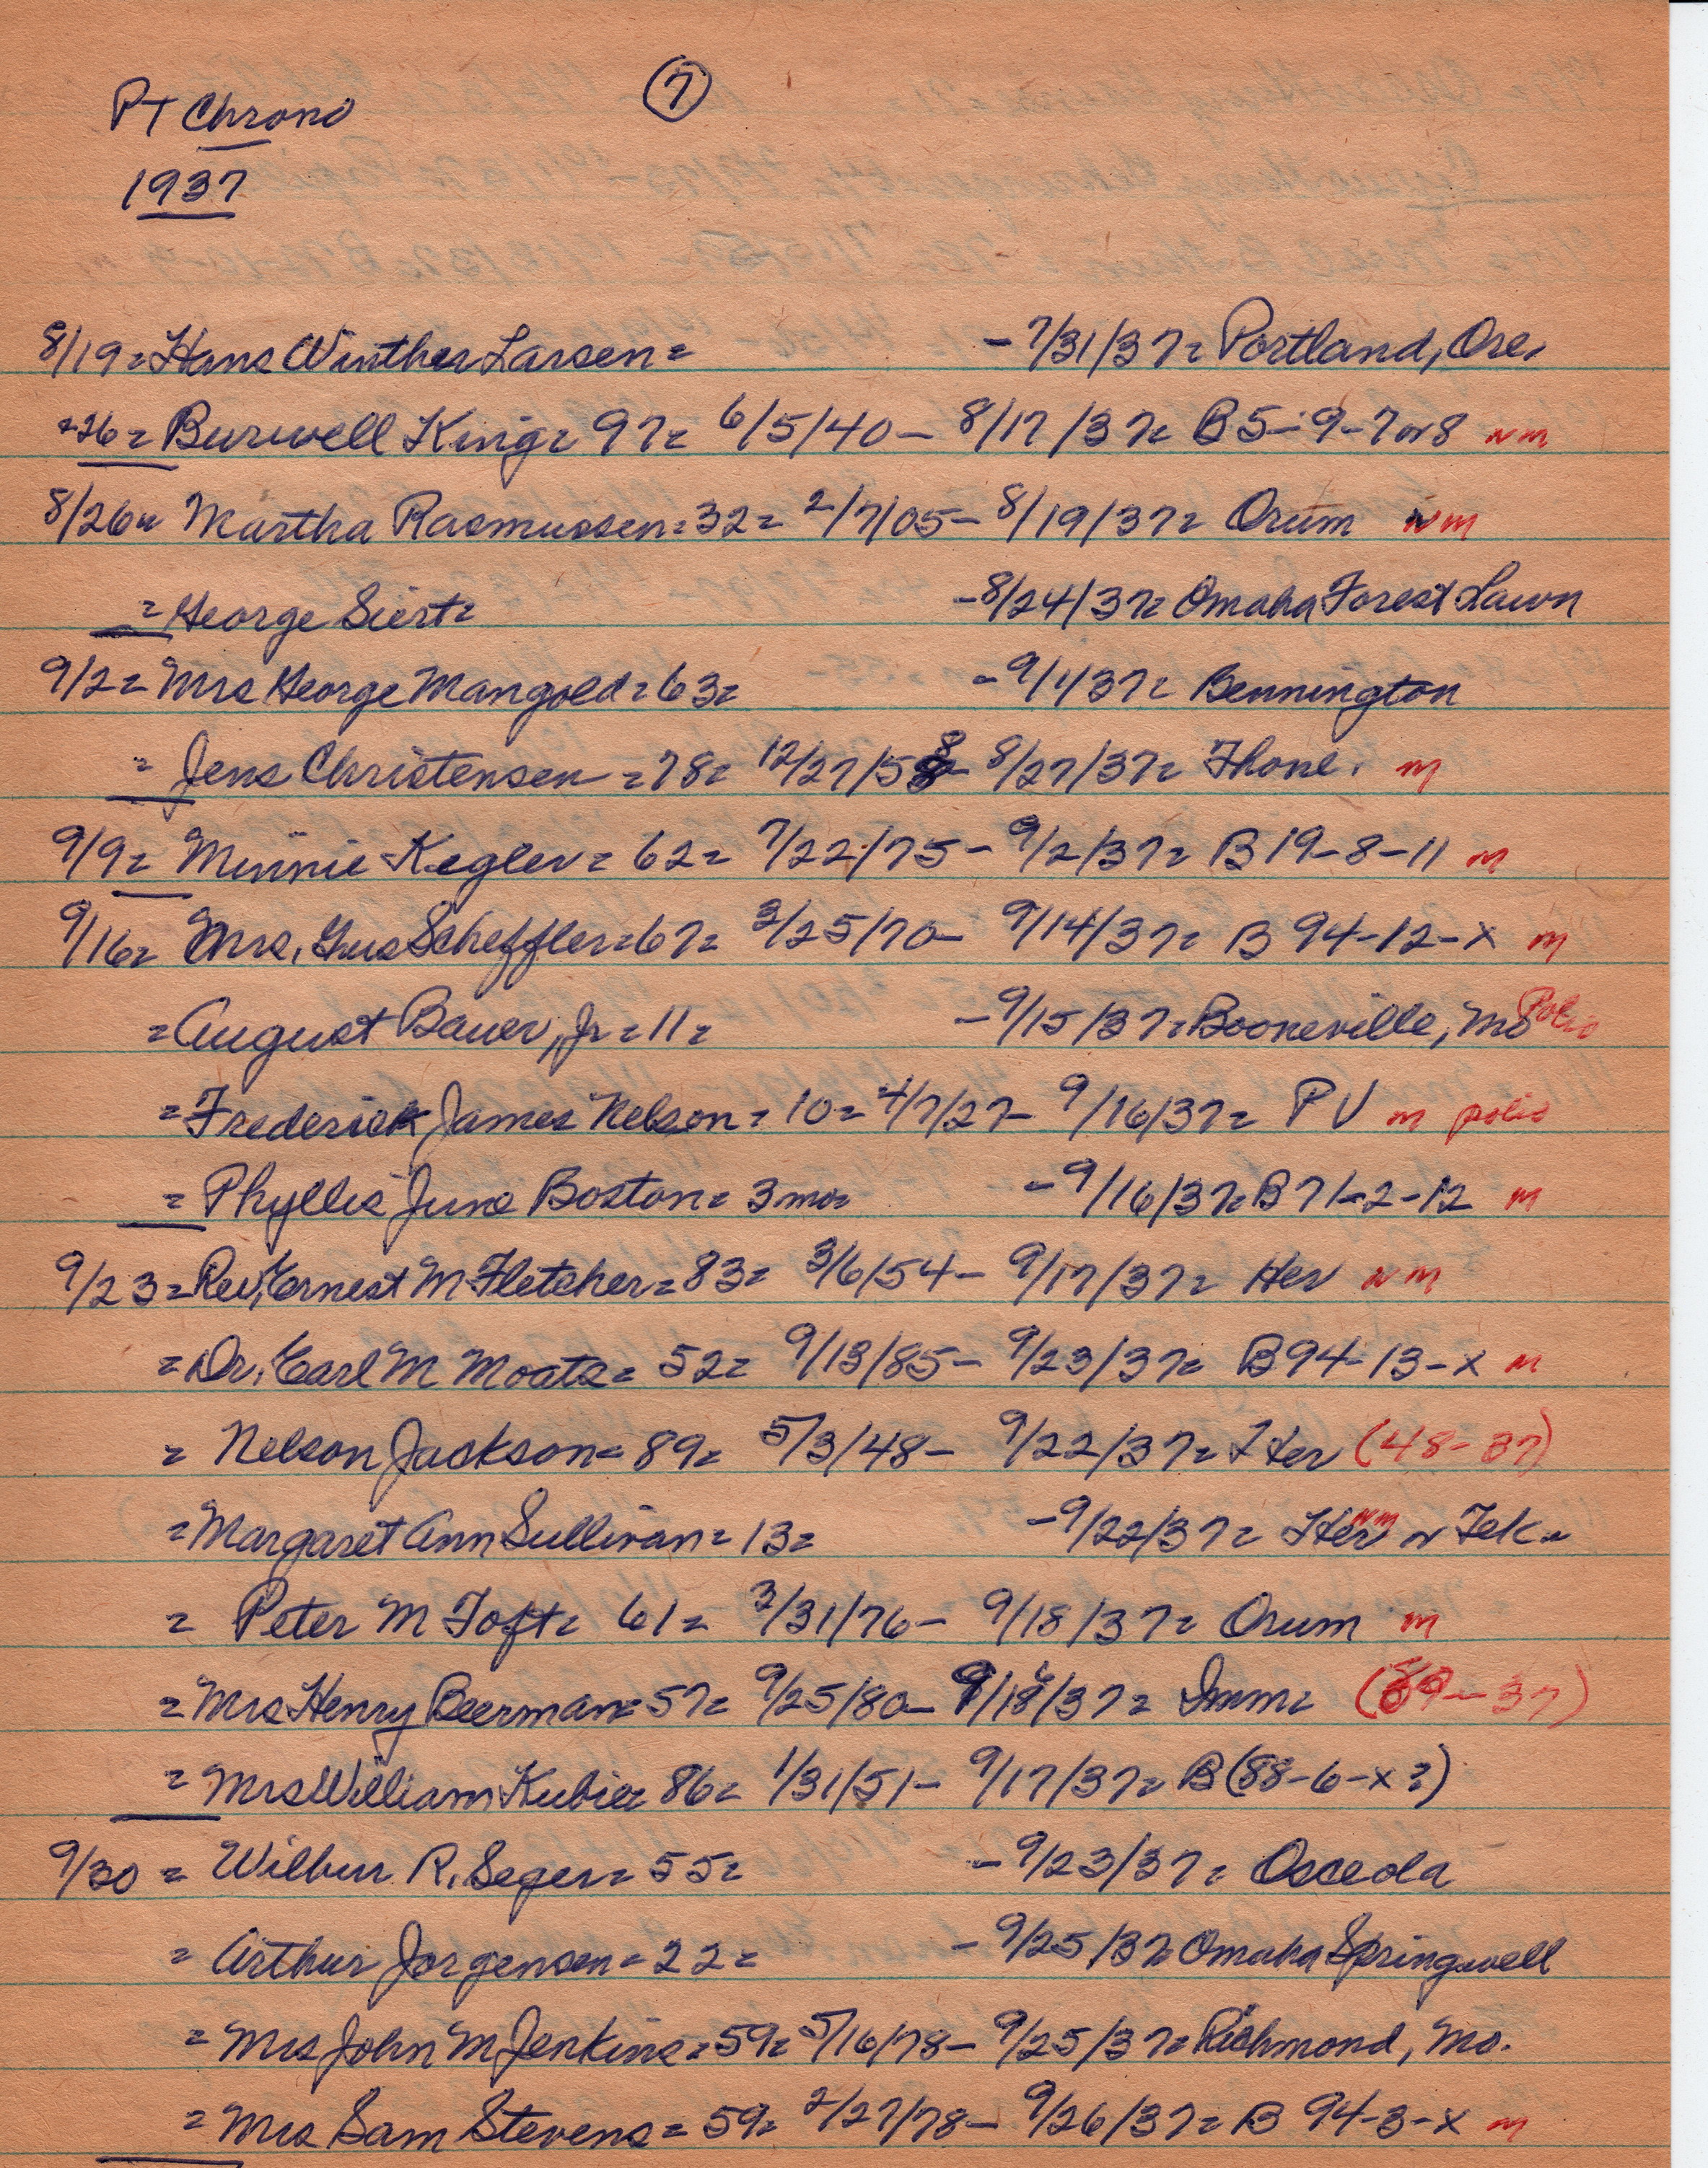 PT Chrono
⑦
1937
8/19 = Hans Winther Larsen = - 7/31/37 = Portland, Ore.
-26 = Burwell King = 97 = 6/5/40 - 8/17/37 = B 5-9-7 or 8 nm
8/26 = Martha Rasmussen = 32 = 2/7/05 - 8/19/37 = Orum nm
= George Siert = - 8/24/37 = Omaha Forest Lawn
9/2 = Mrs George Mangold = 63 = - 9/1/37 = Bennington
= Jens Christensen = 78 = 12/27/58 - 8/27/37 = Fhone. m
9/9 = Minnie Kegler = 62 = 7/22/75 - 9/2/37 = B 19-8-11 m
9/16 = Mrs. Gus Scheffler = 67 = 3/25/70 - 9/14/37 = B 94-12-x m
= August Bauer, Jr = 11 = - 9/15/37 = Booneville, Mo Polio
= Frederick James Nelson = 10 = 4/7/27 - 9/16/37 = PV m polio
= Phyllis June Boston = 3 mo = - 9/16/37 = B 71-2-12 m
9/23 = Rev. Ernest M Fletcher = 83 = 3/6/54 - 9/17/37 = Her nm
= Dr. Earl M Moats = 52 = 9/13/85 - 9/23/37 = B 94-13-x m
= Nelson Jackson = 89 = 5/3/48 - 9/22/37 = Her (48-37)
= Margaret Ann Sullivan = 13 = - 9/22/37 = Her nm or Tek.
= Peter M Toft = 61 = 3/31/76 - 9/18/37 = Orum m
= Mrs Henry Beerman = 57 = 9/25/80 - 9/18/37 = Imm = (89-37)
= Mrs William Kubie = 86 = 1/31/51 - 9/17/37 = B (88-6-x?)
9/30 = Wilbur R. Seger = 55 = - 9/23/37 = Osceola
= Arthur Jorgensen = 22 = - 9/25/37 = Omaha Springwell
= Mrs John M Jenkins = 59 = 5/16/78 - 9/25/37 = Richmond, Mo.
= Mrs Sam Stevens = 59 = 2/27/78 - 9/26/37 = B 94-3-x m